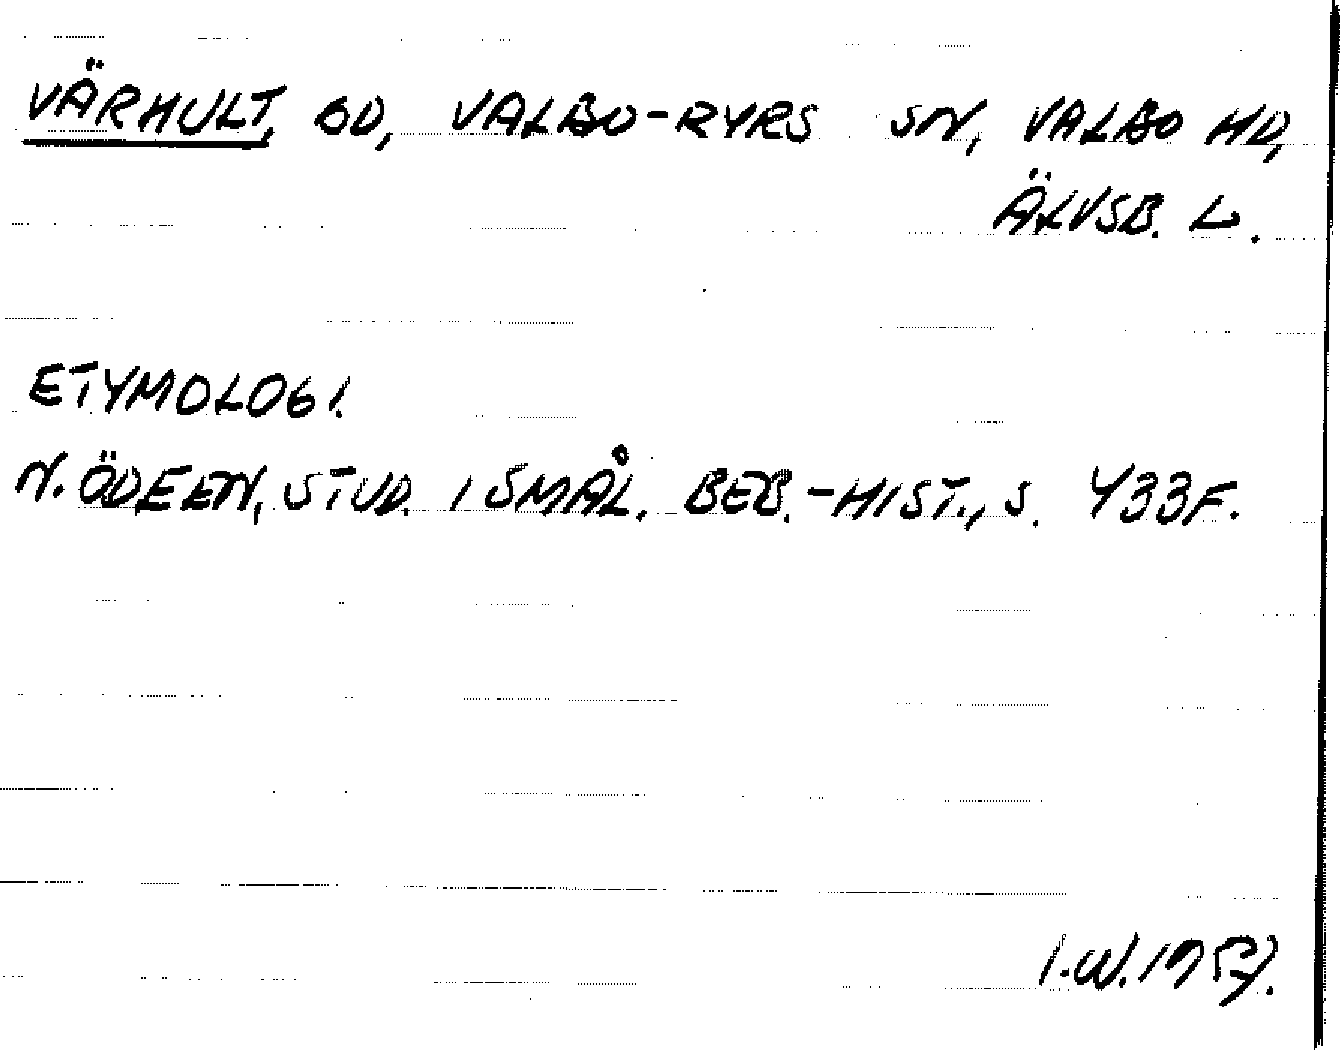 VÄRHULT, GD, VALBO-RYRS SN, VALBO HD,
ÄLVSB. L.
ETYMOLOGI.
N. ÖDEEN, STUD. I SMÅL. BEB.-HIST., S. 433F.
I.W. 1957.